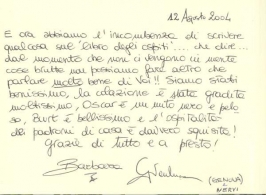 12 Agosto 2004
E ora abbiamo l'incombenza di scrivere
qualcosa sul "libro degli ospiti".... che dire...
dal momento che non ci vengono in mente
cose brutte noi possiamo fare altro che
parlare molto bene di Voi!! Siamo stati
benissimo, la colazione è stata gradita
moltissimo, Oscar è un mito nero e pelo-
so, è bellissimo e l'ospitalità
dei padroni di casa è davvero squisita!
Grazie di tutto e a presto!
Barbara
(GENOVA)
NERVI